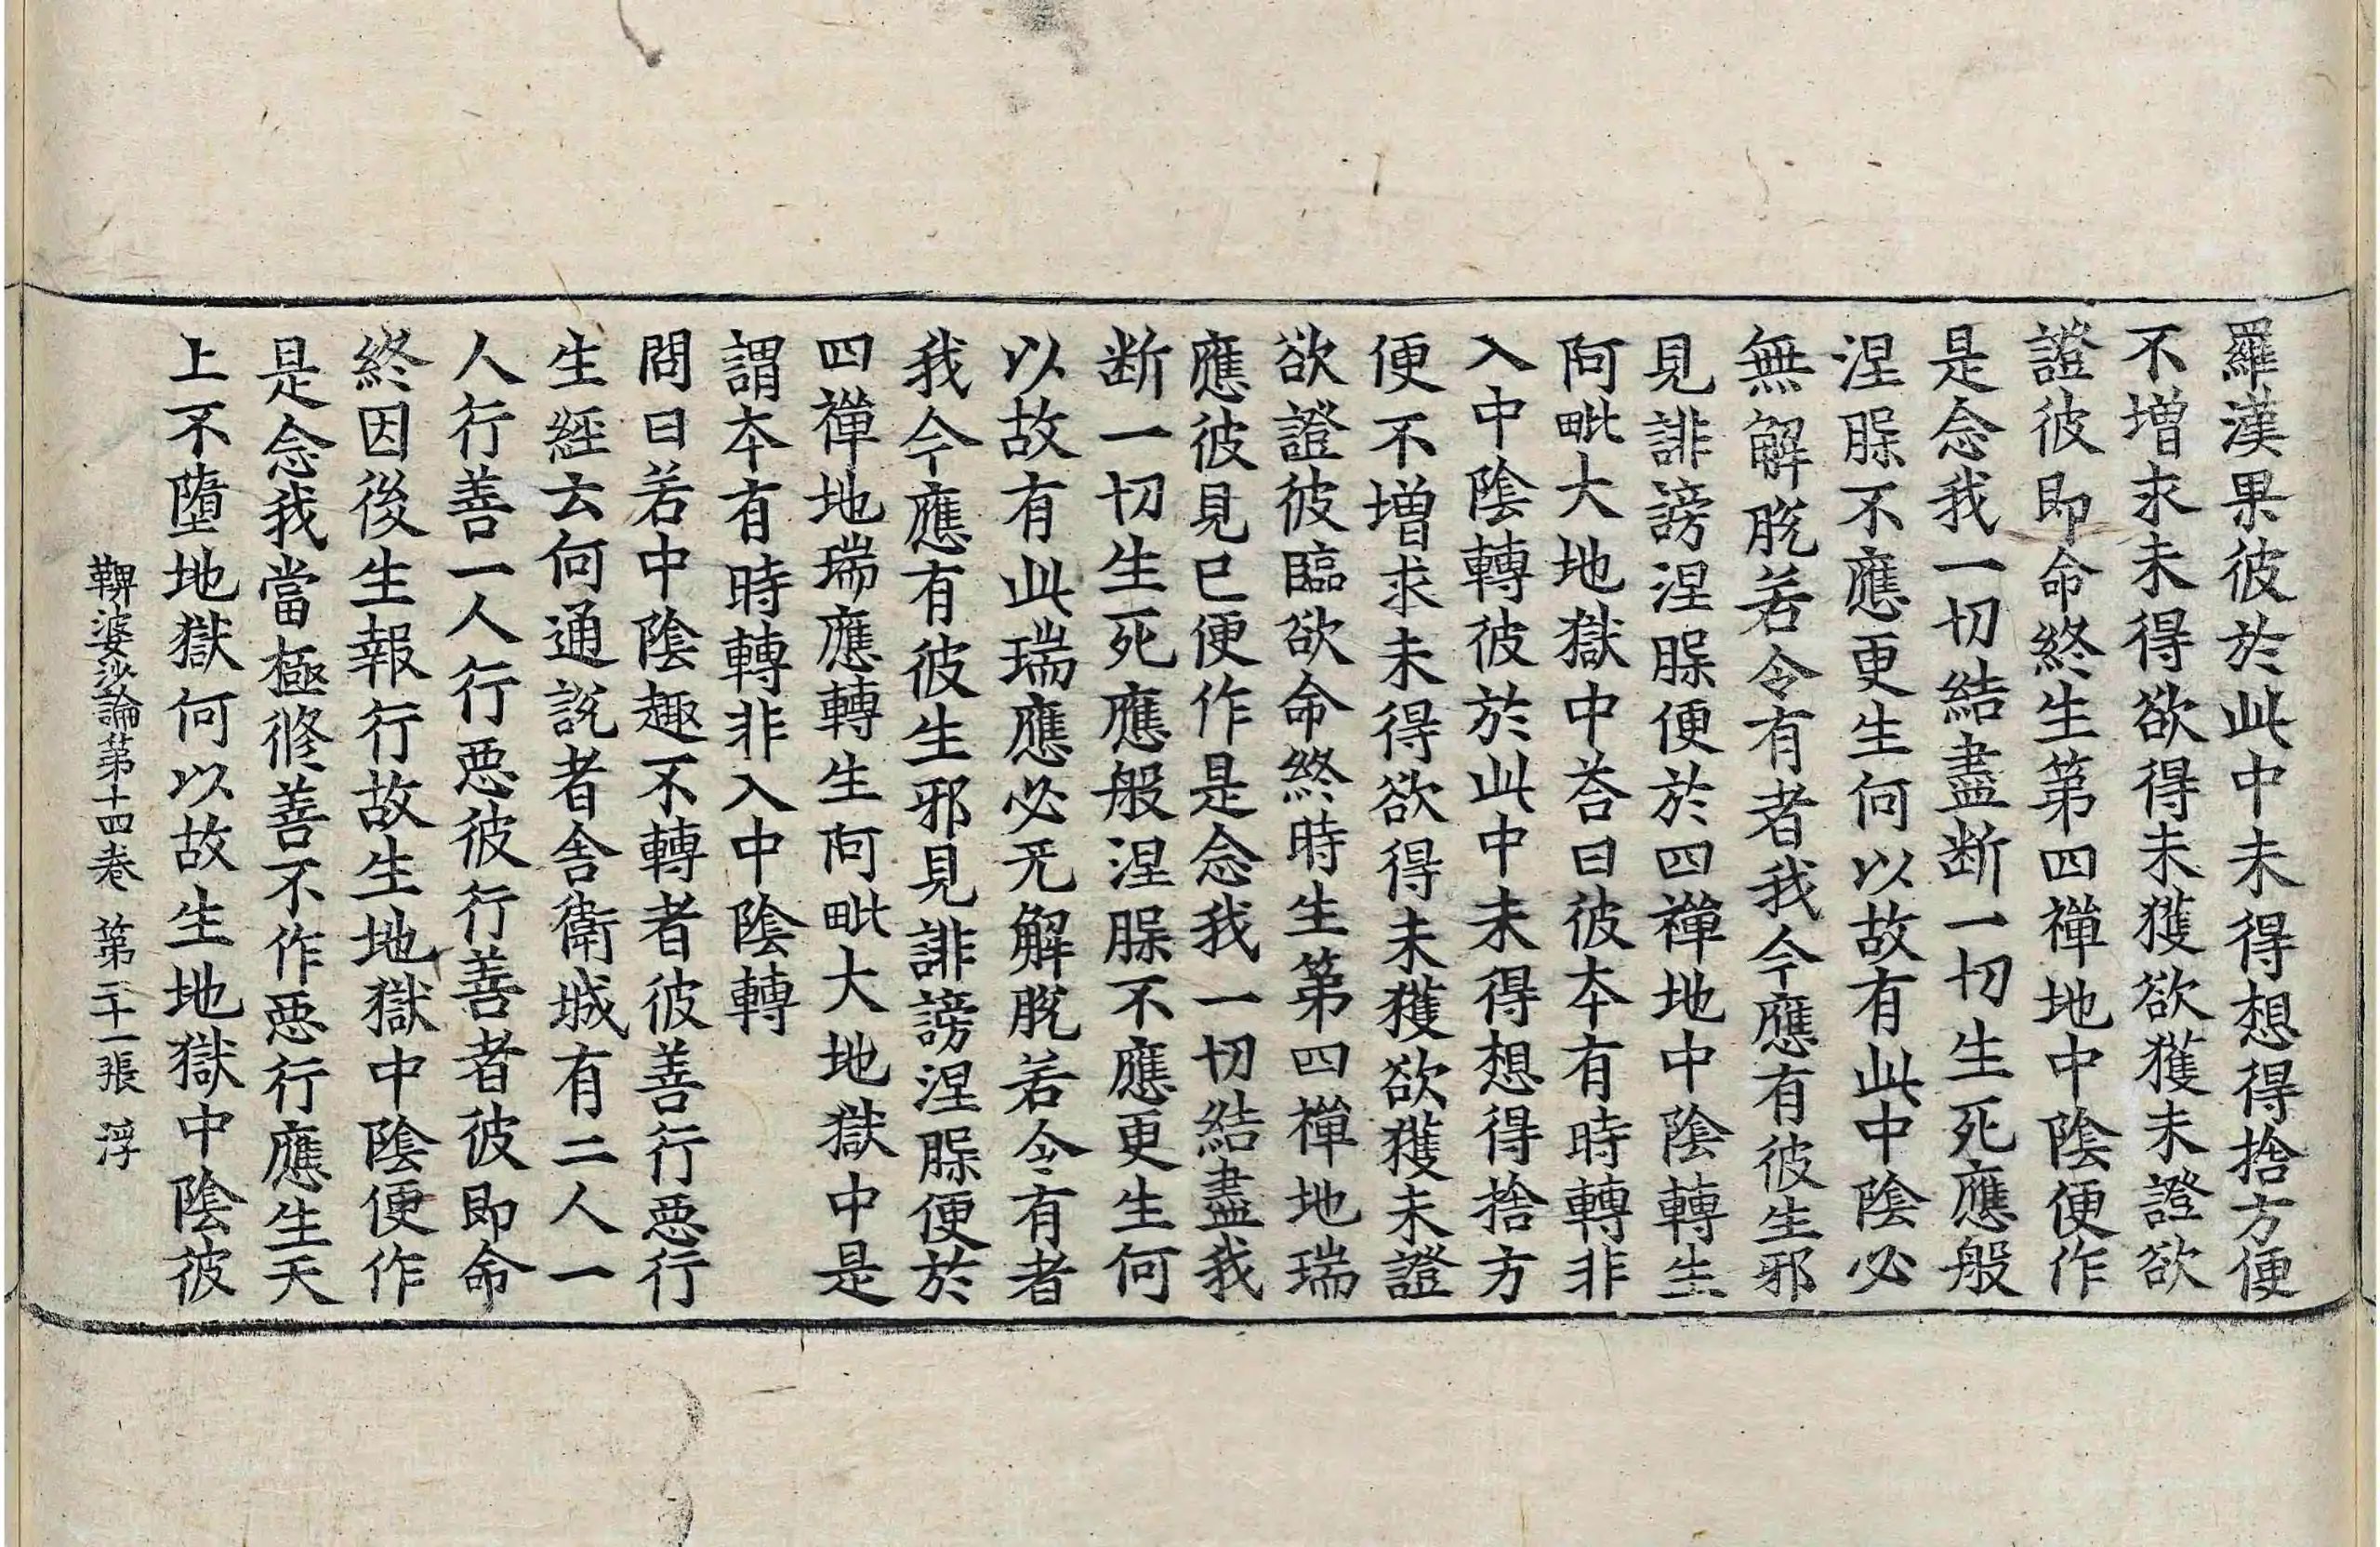 羅漢果彼於此中未得想得捨方便
不增求未得欲得未獲欲獲未證欲
證彼即命終生第四禪地中陰便作
是念我一切結盡断一切生死應般
涅脲不應更生何以故有此中陰必
無解脫若令有者我今應有彼生邪
見誹謗涅脲便於四禪地中陰轉生
阿毗大地獄中荅曰彼夲有時轉非
入中陰轉彼於此中未得想得捨方
便不增求未得欲得未獲欲獲未證
欲證彼臨欲命終時生第四禪地瑞
應彼見已便作是念我一切結盡我
断一切生死應般涅脲不應更生何
以故有此瑞應必无解脫若令有者
我今應有彼生邪見誹謗涅脲便於
四禪地瑞應轉生阿毗大地獄中是
謂夲有時轉非入中陰轉
問曰若中陰趣不轉者彼善行惡行
生經云何通說者舍衛城有二人一
人行善一人行惡彼行善者彼即命
終因後生報行故生地獄中陰便作
是念我當極修善不作惡行應生天
上不墮地獄何以故生地獄中陰彼
鞞婆沙論第十四卷 第二十一張 浮